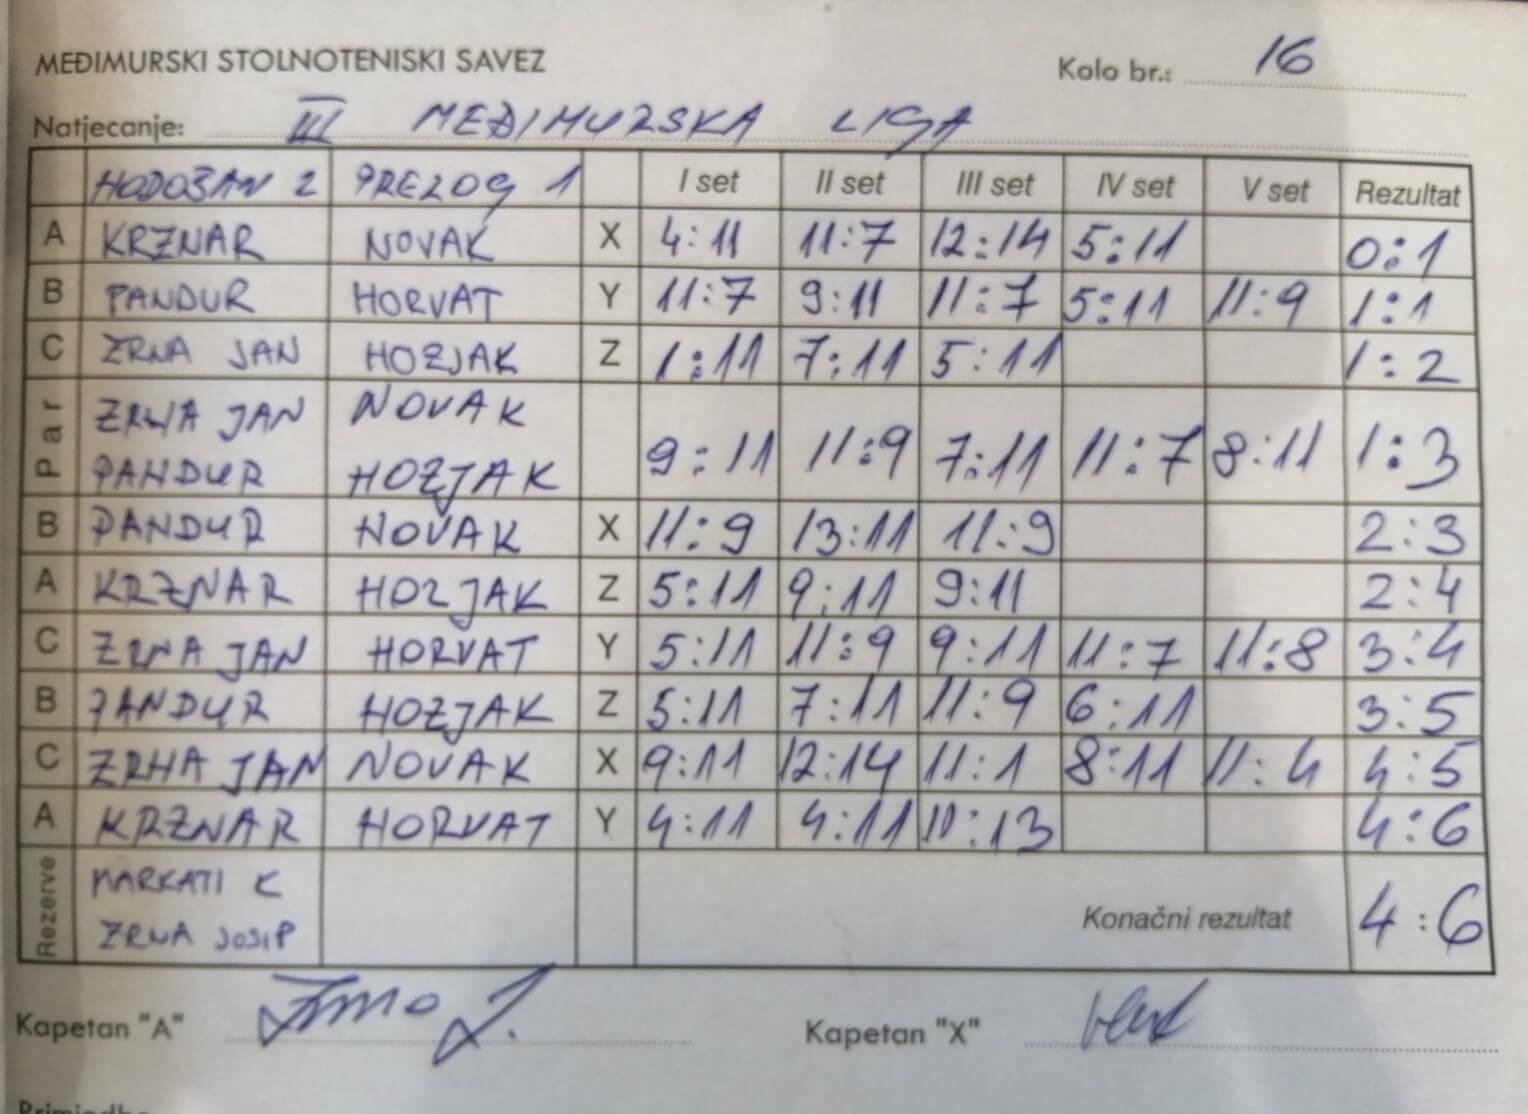 MEĐIMURSKI STOLNOTENISKI SAVEZ
Kolo br.: 16
Natjecanje: III MEĐIMURSKA LIGA
HODOŠAN 2 PRELOG 1 I set II set III set IV set V set Rezultat
A KRZNAR NOVAK X 4:11 11:7 12:14 5:11 0:1
B PANDUR HORVAT Y 11:7 9:11 11:7 5:11 11:9 1:1
C ZRNA JAN HOZJAK Z 1:11 7:11 5:11 1:2
Par ZRNA JAN NOVAK
PANDUR HOZJAK 9:11 11:9 7:11 11:7 8:11 1:3
B PANDUR NOVAK X 11:9 13:11 11:9 2:3
A KRZNAR HOZJAK Z 5:11 9:11 9:11 2:4
C ZRNA JAN HORVAT Y 5:11 11:9 9:11 11:7 11:8 3:4
B PANDUR HOZJAK Z 5:11 7:11 11:9 6:11 3:5
C ZRNA JAN NOVAK X 9:11 12:14 11:1 8:11 11:4 4:5
A KRZNAR HORVAT Y 4:11 4:11 10:13 4:6
Rezerve MARKATI K
ZRNA JOSIP
Konačni rezultat 4:6
Kapetan "A" Kapetan "X"